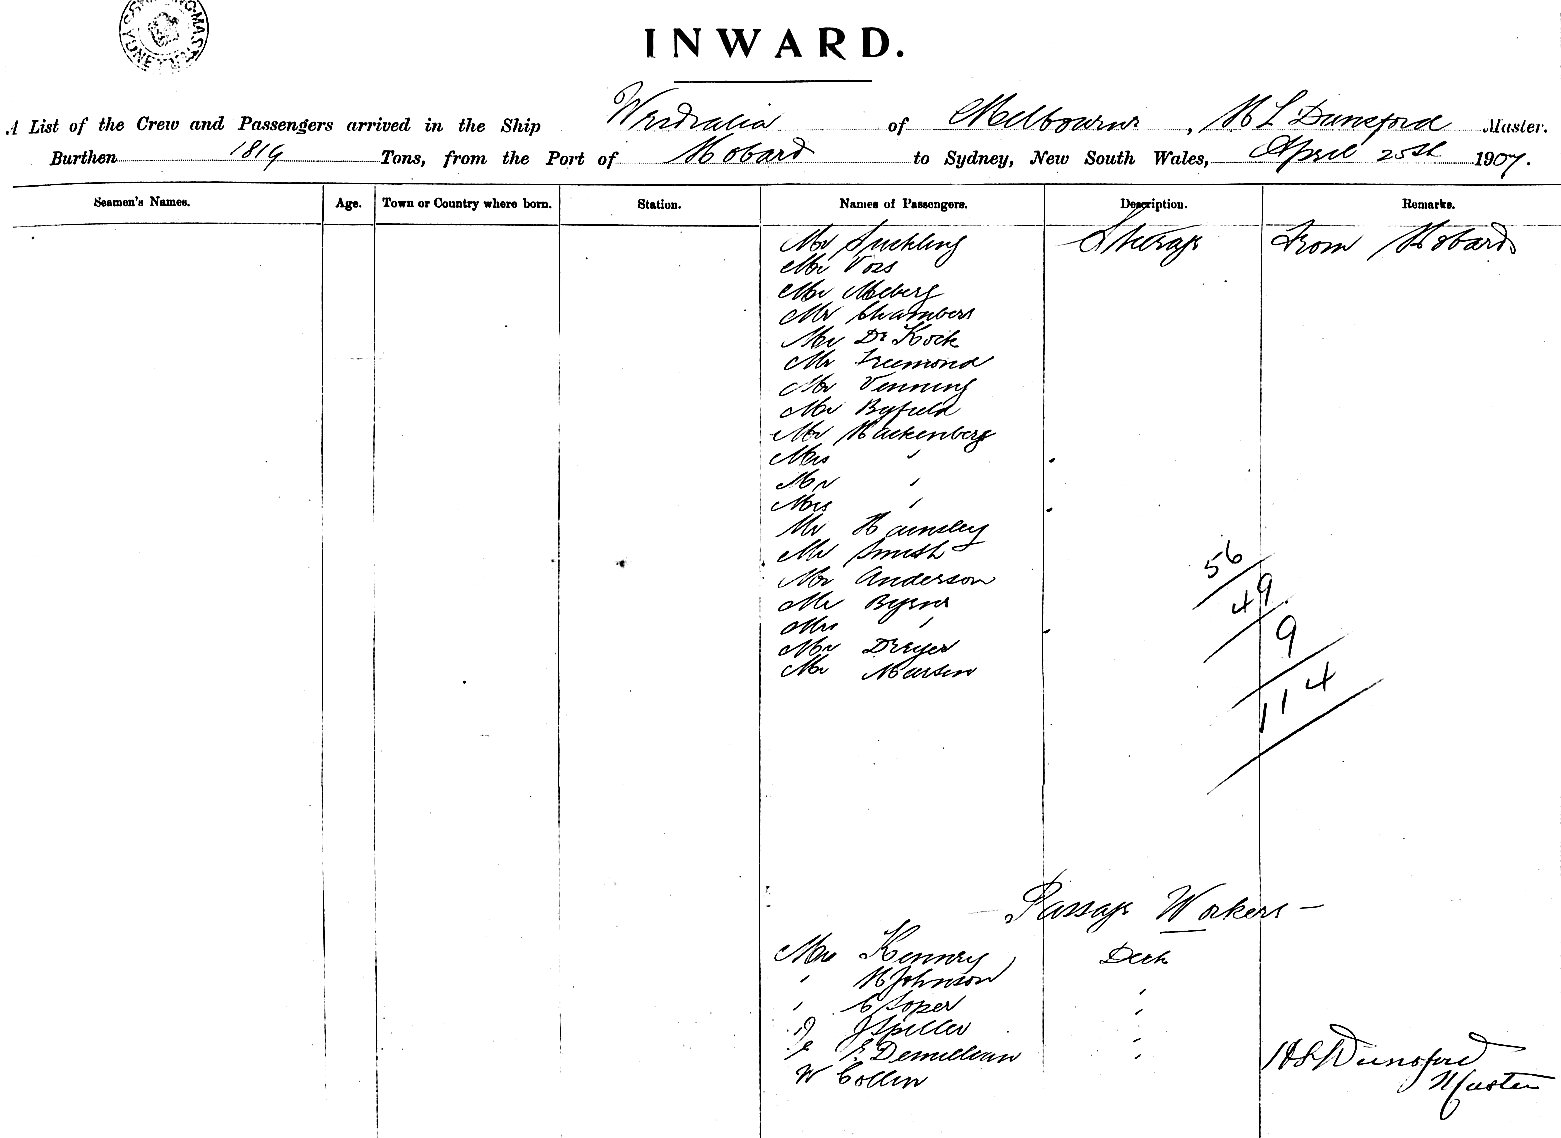 INWARD.
A List of the Crew and Passengers arrived in the Ship Westralia of Melbourne, H L Dunsford Master.
Burthen 1819 Tons, from the Port of Hobart to Sydney, New South Wales, April 25th 1907.
Seamen's Names. Age. Town or Country where born. Station. Names of Passengers. Description. Remarks.
Mr Suckling Steerage From Hobart
Mr Voss
Mr Moberg
Mr Chambers
Mr De Kock
Mr Freemond
Mr Venning
Mr Byfield
Mr Hackenberg
Mrs "
Mr "
Mrs "
Mr Hainsley
Mr Smith
Mr Anderson
Mr Byrne
Mrs "
Mr Dreyer
Mr Marsen
56
49
9
114
Passage Workers
Kenney Deck
" H Johnson "
" C Soper "
J Spiller "
"
W Collin
H L Dunsford
Master